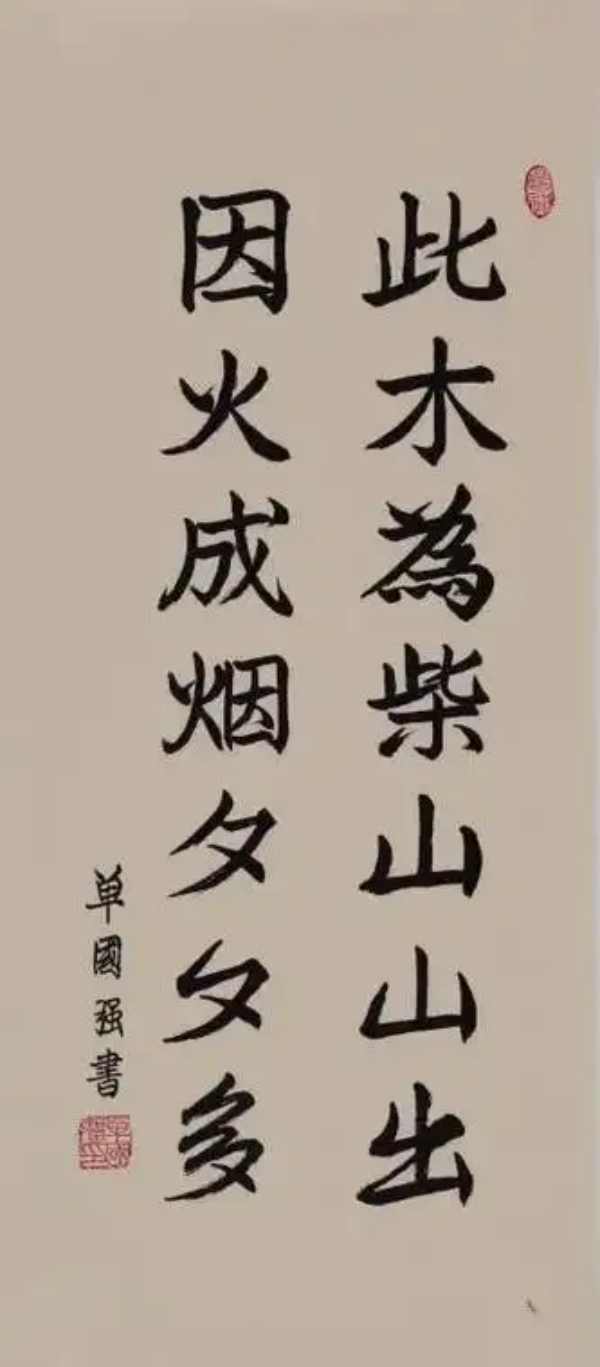 此木為柴山山出
因火成烟夕夕多
单國强書